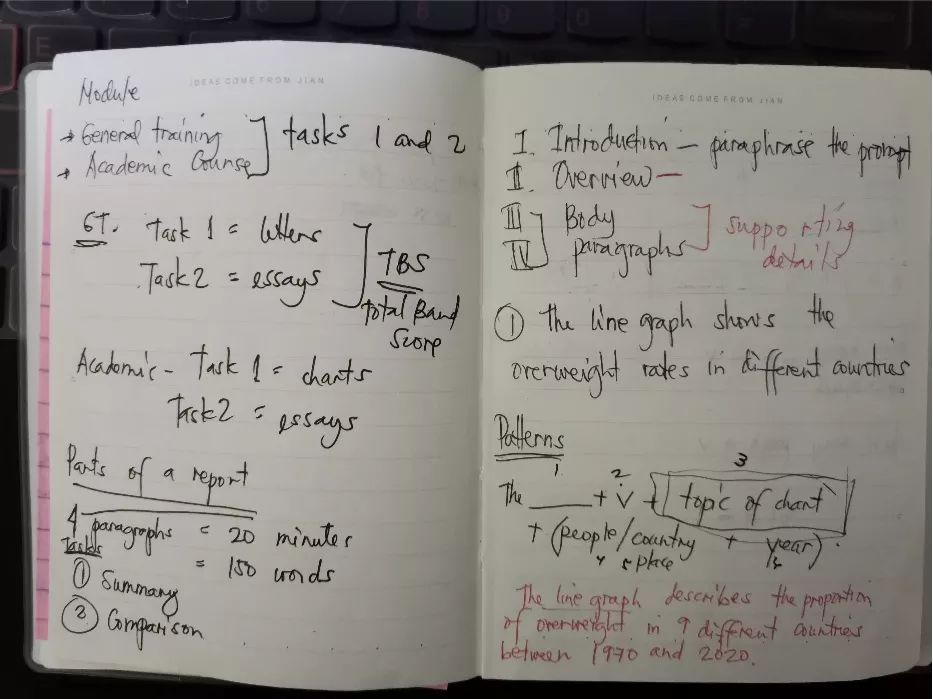 IDEAS COME FROM JIAN
Module
→ General training
→ Academic Course
] tasks 1 and 2
GT. Task 1 = letters
Task 2 = essays
] TBS
Total Band
Score
Academic - Task 1 = charts
Task 2 = essays
Parts of a report
4 paragraphs = 20 minutes
= 150 words
Tasks
① Summary
② Comparison
IDEAS COME FROM JIAN
I. Introduction — paraphrase the prompt
II. Overview —
III ] Body
IV ] paragraphs
] supporting
details
① The line graph shows the
overweight rates in different countries
Patterns
1. 2. 3
The ____ + v + topic of chart
+ (people/country + year).
place
The line graph describes the proportion
of overweight in 9 different countries
between 1970 and 2020.